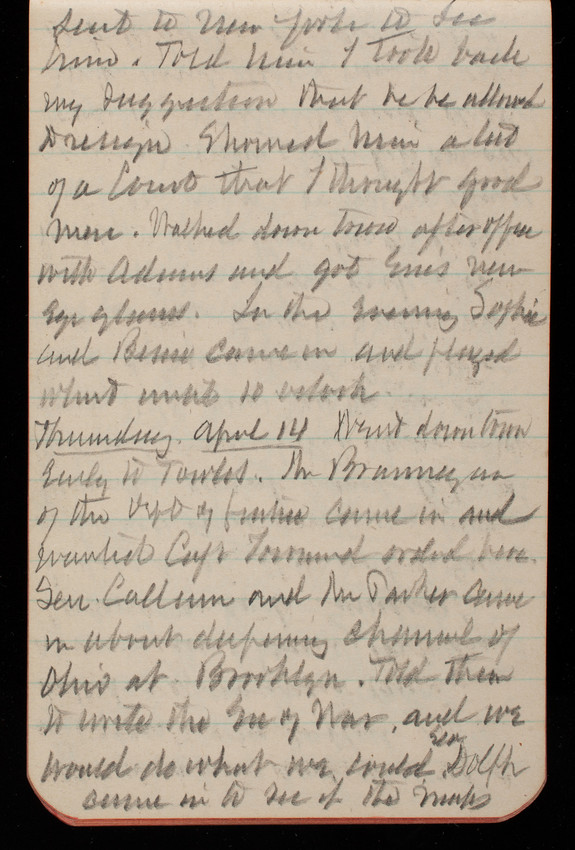 sent to New York to see
him. Told him I took back
my suggestion that he be allowed
to resign. Showed him a list
of a Court that I thought good
men. Walked down town after office
with Adams and got new
Eye glasses. In the evening Sophie
and Bessie came in and played
whist until 10 oclock
Thursday April 14 Went down town
Early to Towles. Mr Brannegan
of the Dept of Justice came in and
wanted Capt Townsend orded here.
Sen. Cullum and Mr Parker came
in about deepening channel of
Ohio at Brooklyn. Told them
to write the Sec of War, and we
would do what we could. Sen Dolph
came in to see if the maps